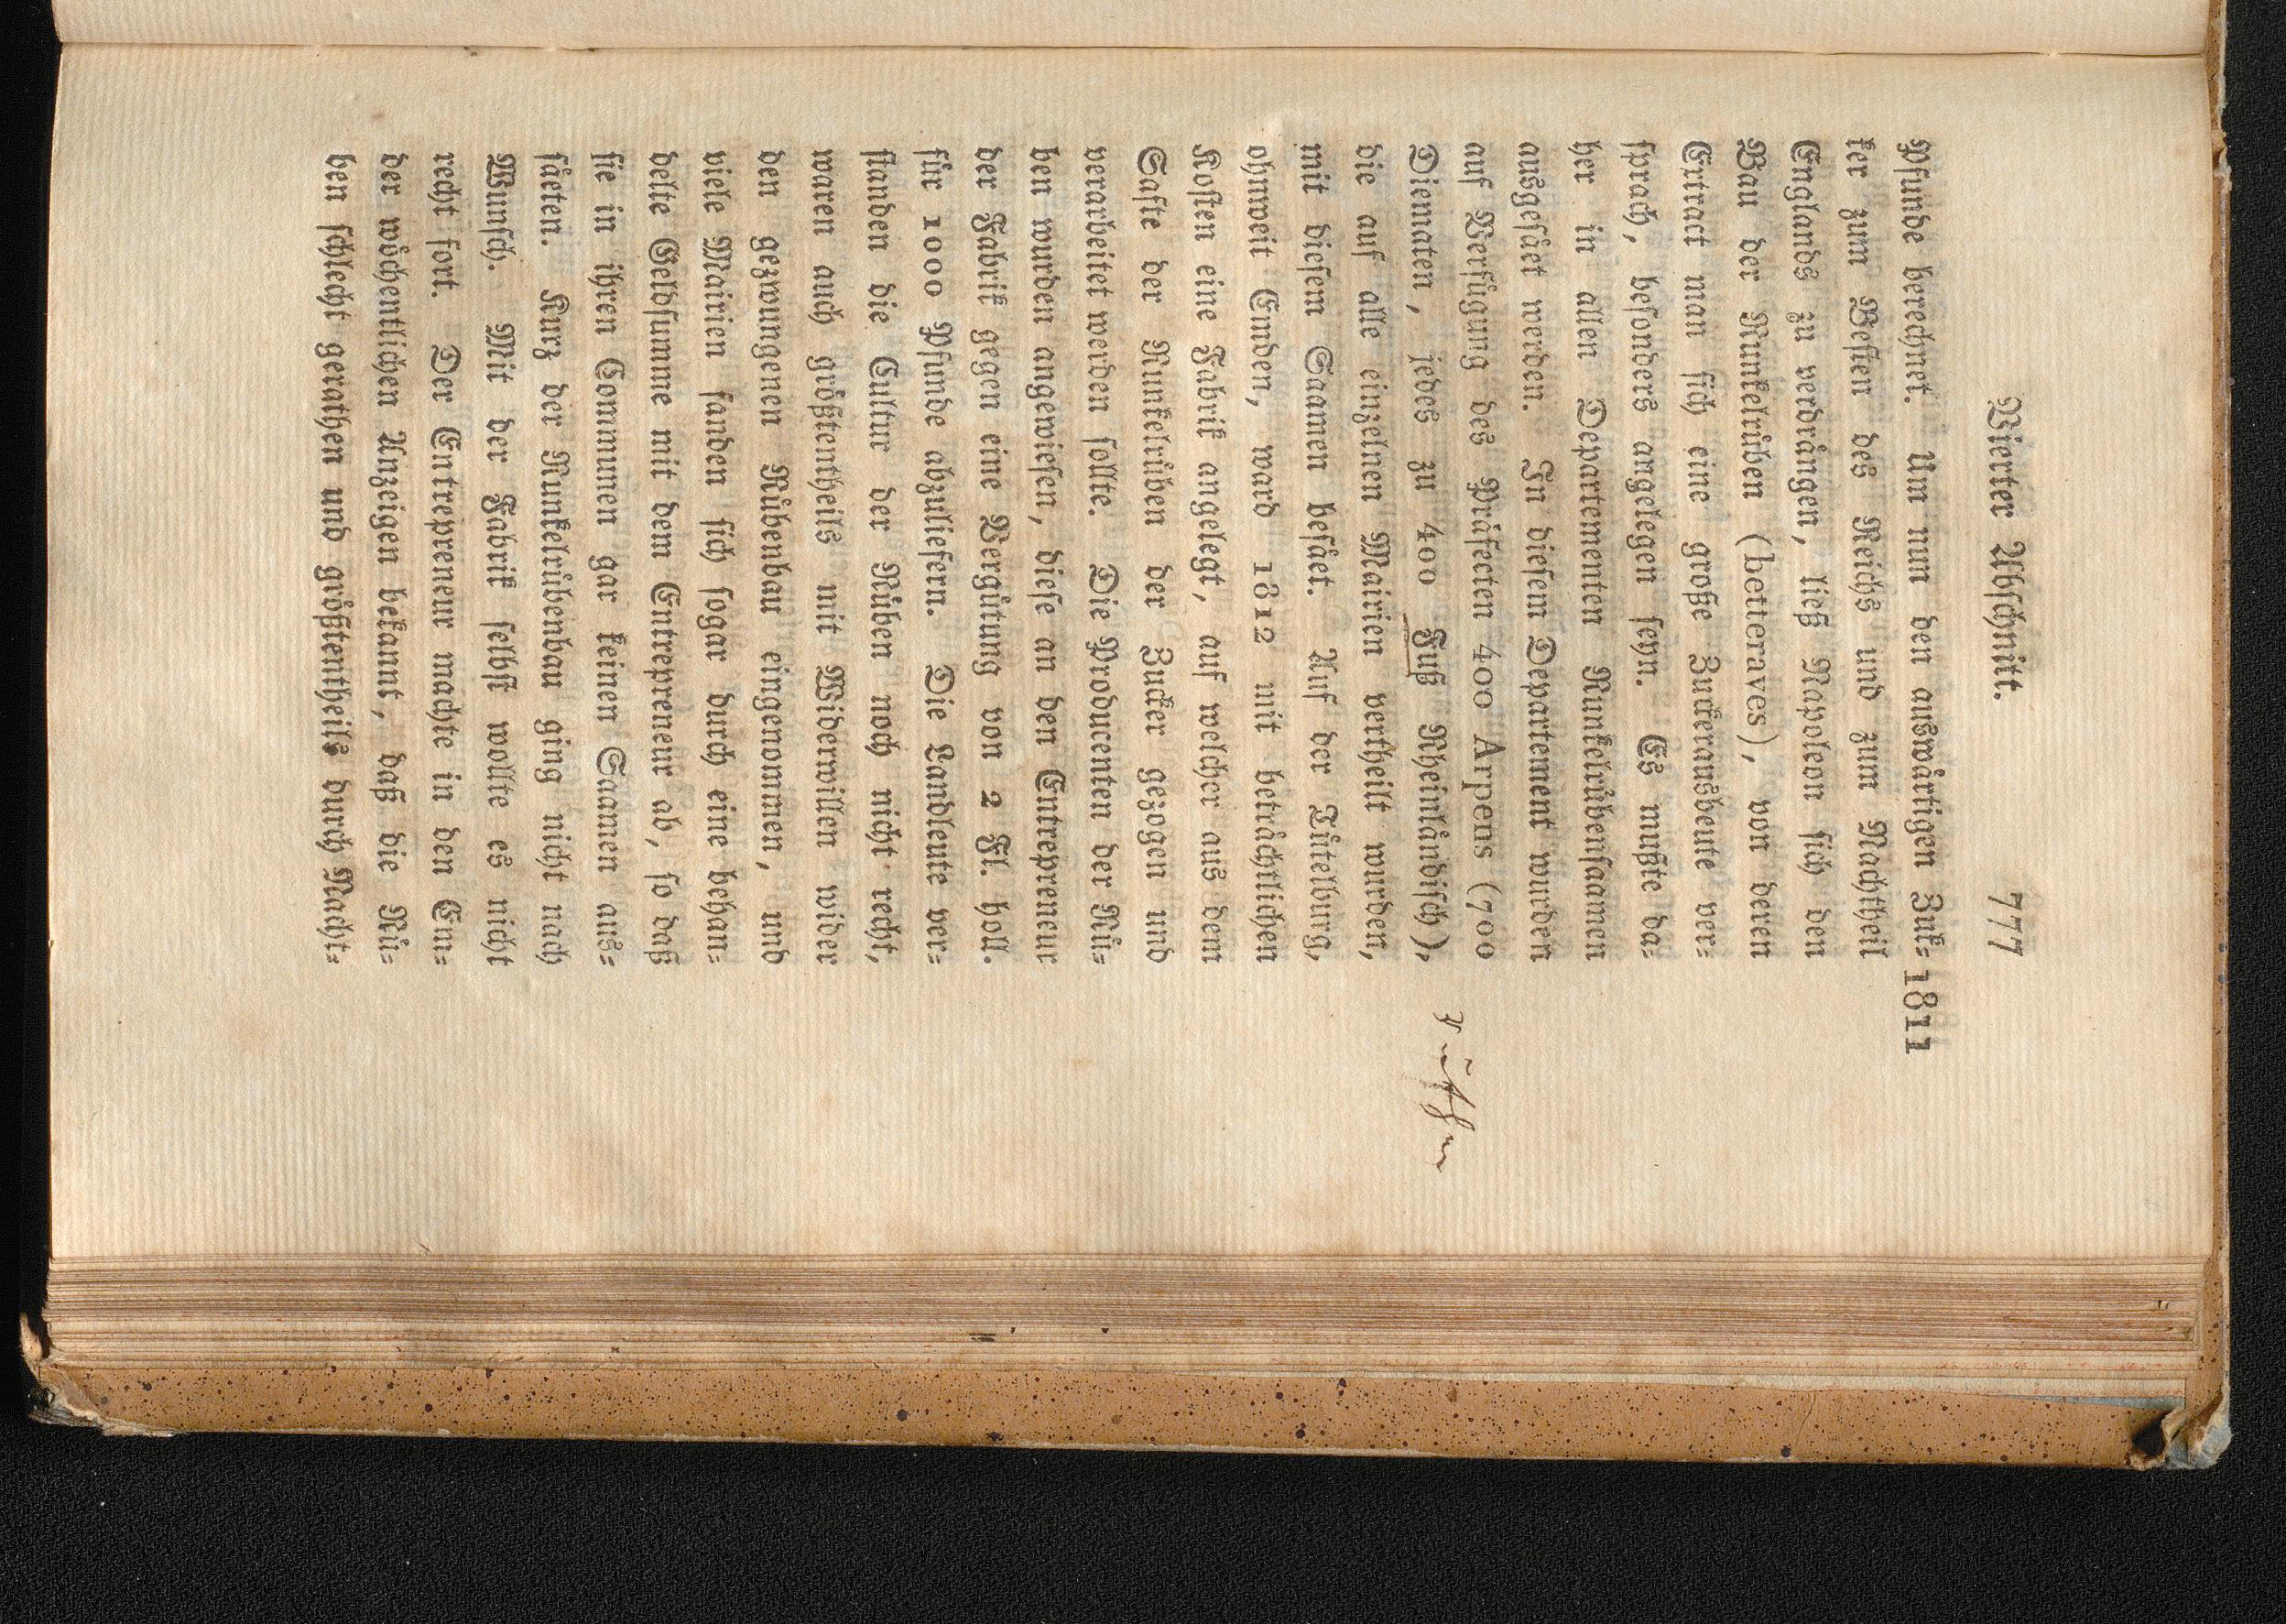 Vierter Abschnitt. 777
Pfunde berechnet. Um nun den auswärtigen Zuk= 1811
ker zum Besten des Reichs und zum Nachtheil
Englands zu verdrängen, ließ Napoleon sich den
Bau der Runkelrüben (betteraves), von deren
Extract man sich eine große Zuckerausbeute ver=
sprach, besonders angelegen seyn. Es mußte da=
her in allen Departementen Runkelrübensaamen
ausgesäet werden. In diesem Departement wurden
auf Verfügung des Präfecten 400 Arpens (700
Diematen, jedes zu 400 Fuß Rheinländisch),
die auf alle einzelnen Mairien vertheilt wurden,
mit diesem Saamen besäet. Auf der Lütelburg,
ohnweit Emden, ward 1812 mit beträchtlichen
Kosten eine Fabrik angelegt, auf welcher aus dem
Safte der Runkelrüben der Zucker gezogen und
verarbeitet werden sollte. Die Producenten der Rü=
ben wurden angewiesen, diese an den Entrepreneur
der Fabrik gegen eine Vergütung von 2 Fl. holl.
für 1000 Pfunde abzuliefern. Die Landleute ver=
standen die Cultur der Rüben noch nicht recht,
waren auch größtentheils mit Widerwillen wider
den gezwungenen Rübenbau eingenommen, und
viele Mairien fanden sich sogar durch eine behan=
delte Geldsumme mit dem Entrepreneur ab, so daß
sie in ihren Communen gar keinen Saamen aus=
säeten. Kurz der Runkelrübenbau ging nicht nach
Wunsch. Mit der Fabrik selbst wollte es nicht
recht fort. Der Entrepreneur machte in den Em=
der wöchentlichen Anzeigen bekannt, daß die Rü=
ben schlecht gerathen und größtentheils durch Nacht=